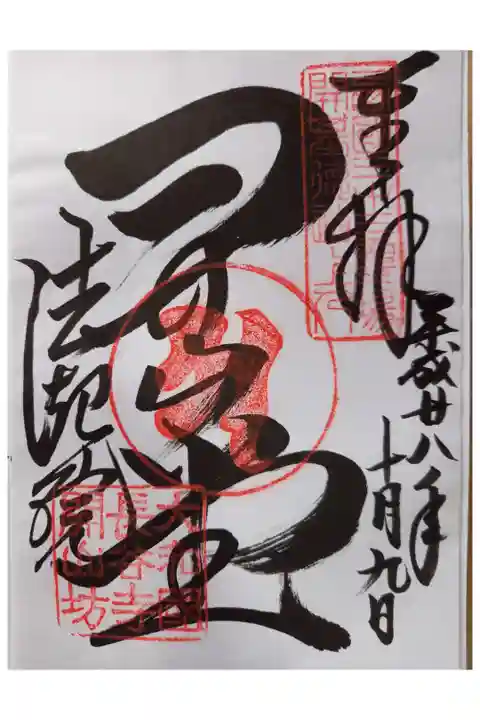 奉拝
平成廿八年
十月九日
開山堂
法起院
大和國
長谷寺
開山坊